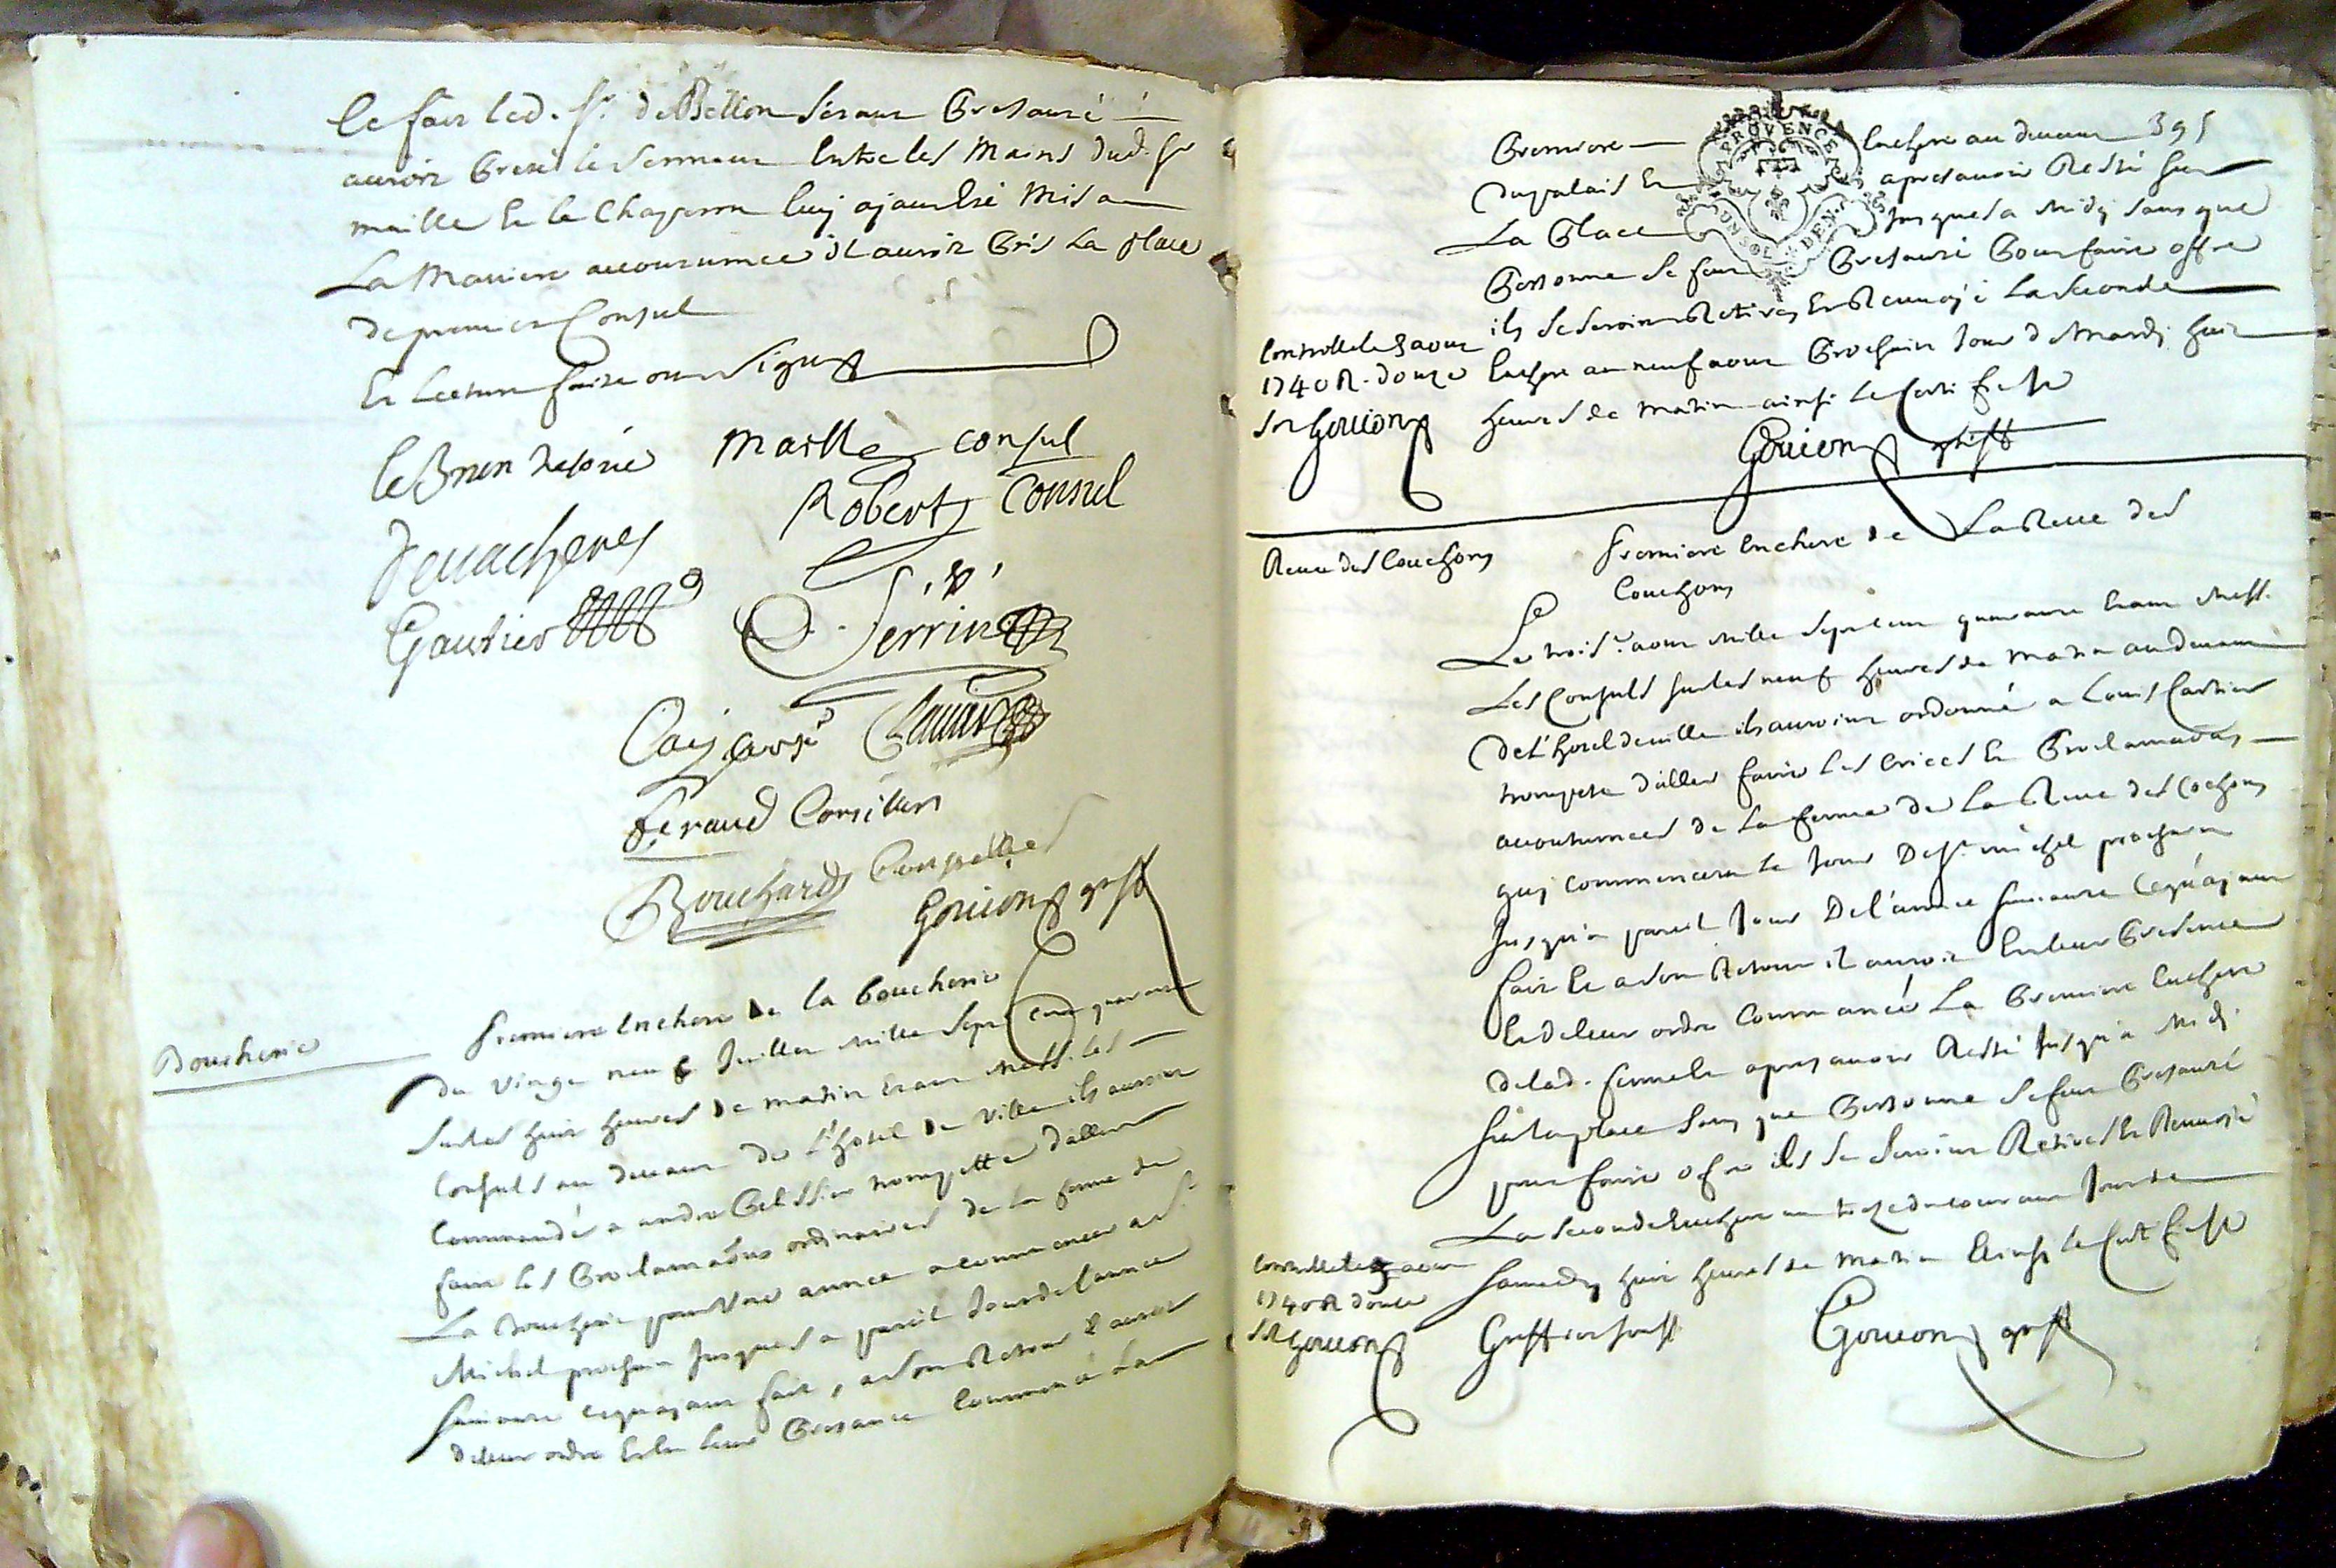 Ce fait led. Sr. de Bellon sérant presanté
auroit presté le serment entre les mains dud. Sr
maille et le chaperon luy ajant esté mis a
La maniere accoutumée il auroit pris la place
de premier Consul
Et lecture faite ont signé
le Bnen
maille consul
Robert Consul
Gautier
Perrin
feraud Conseiller
Bouchard Conseiller
Gouion greff
Boucherie
premiere enchere de la boucherie
du vingt neuf Juillet mille sept cent quarante
sur les huit heures de matin etant Messrs les
Consuls au devant de L'hotel de ville ils auroint
Commandé a andre Pelissier trompette d'aller
faire les proclamaons ordinaires de la ferme de
La Boucherie pour une année a commancer a St.
Michel prochain jusques a pareil jour de l'année
suivante cequajant fait, a son Retour il auroit
de leur ordre et en leur presance Commancé La
premiere enchere au devant 395
du palais et apres avoir Resté sur
La place jusques a midy sans que
personne se soit presanté pour faire offre
ils se seroint Retirés et Renvoyé La seconde
enchere au neuf aout prochain jour de Mardy huit
heures de matin ainsi le certiffie
Controllé le 3 aout
1740 R. douze
s. Gouion
Gouion greff
Reuue des Couchons
premiere enchere de La Reuue des
Couchons
Le trois.e aout mille sept cent quarante etant Messrs.
Les Consuls sur les neuf heures de matin au devant
de L'hotel de ville ils auroint ordonné a Louis Cartier
trompete d'aller faire les criées et proclamaons
accoutumées de La ferme de La Reuue des Cochons
quy commencera le jour De St. michel prochain
jusqu'a pareil jour De l'année suivante Cequ'ajant
fait et a son Retour il auroit en leur presence
et de leur ordre Commancé La premiere enchere
de lad. ferme et apres avoir Resté jusqu'a midi
sur la place sans que personne se soit presanté
pour faire ofre ils se seroint Retirés et Renvoyé
La seconde enchere au treze du courant jour de
samedy huit heures de matin et ainsi le certiffie
Controllé le 3 aout
1740 R douze
s. Gouion
Greffier soussé
Gouion greff